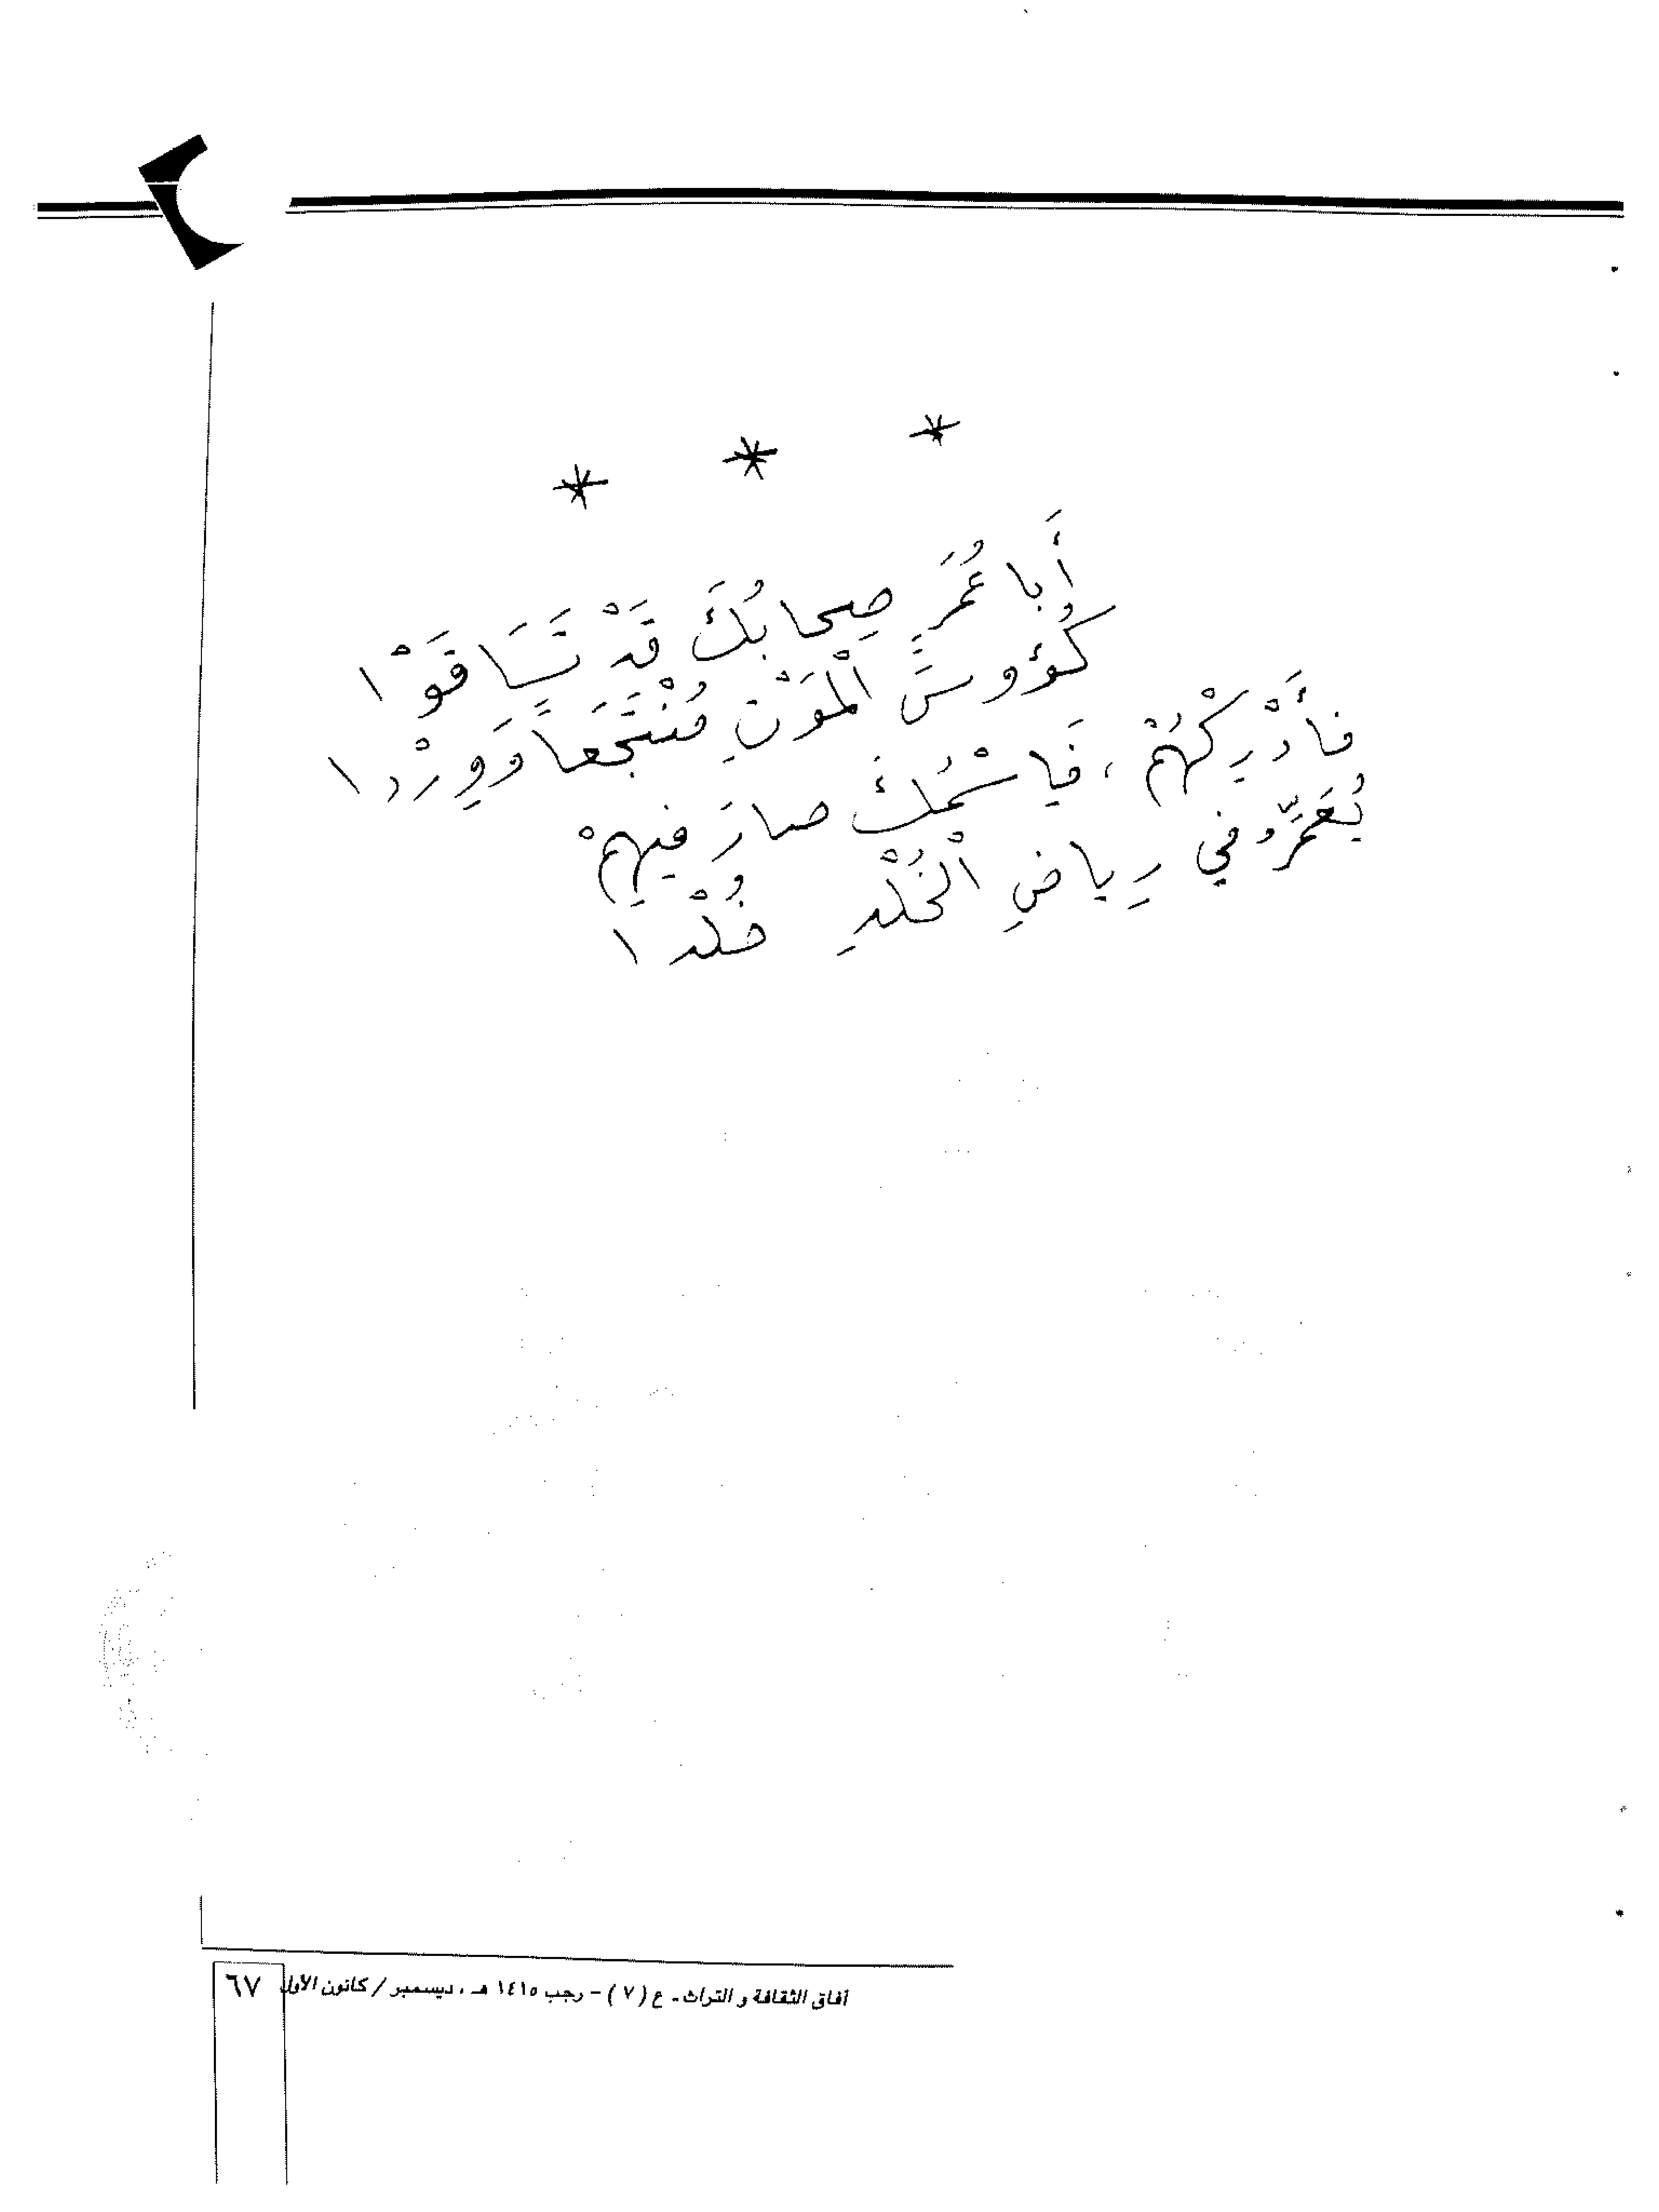 * * *
أَبا عُمَرٍ صِحابُكَ قَدْ تَسَاقَوْا
كُؤوسَ الْمَوْتِ مُنْتَجَعاً وَوِرْدا
فأَدْرِكْهُمْ ، فَاسْمُكَ صارَ فيهِمْ
يُعَمَّرُ في رِياضِ الْخُلْدِ خُلْدا
آفاق الثقافة و التراث ـ ع ( ٧ ) – رجب ١٤١٥ هـ ، ديسمبر / كانون الأول ٦٧